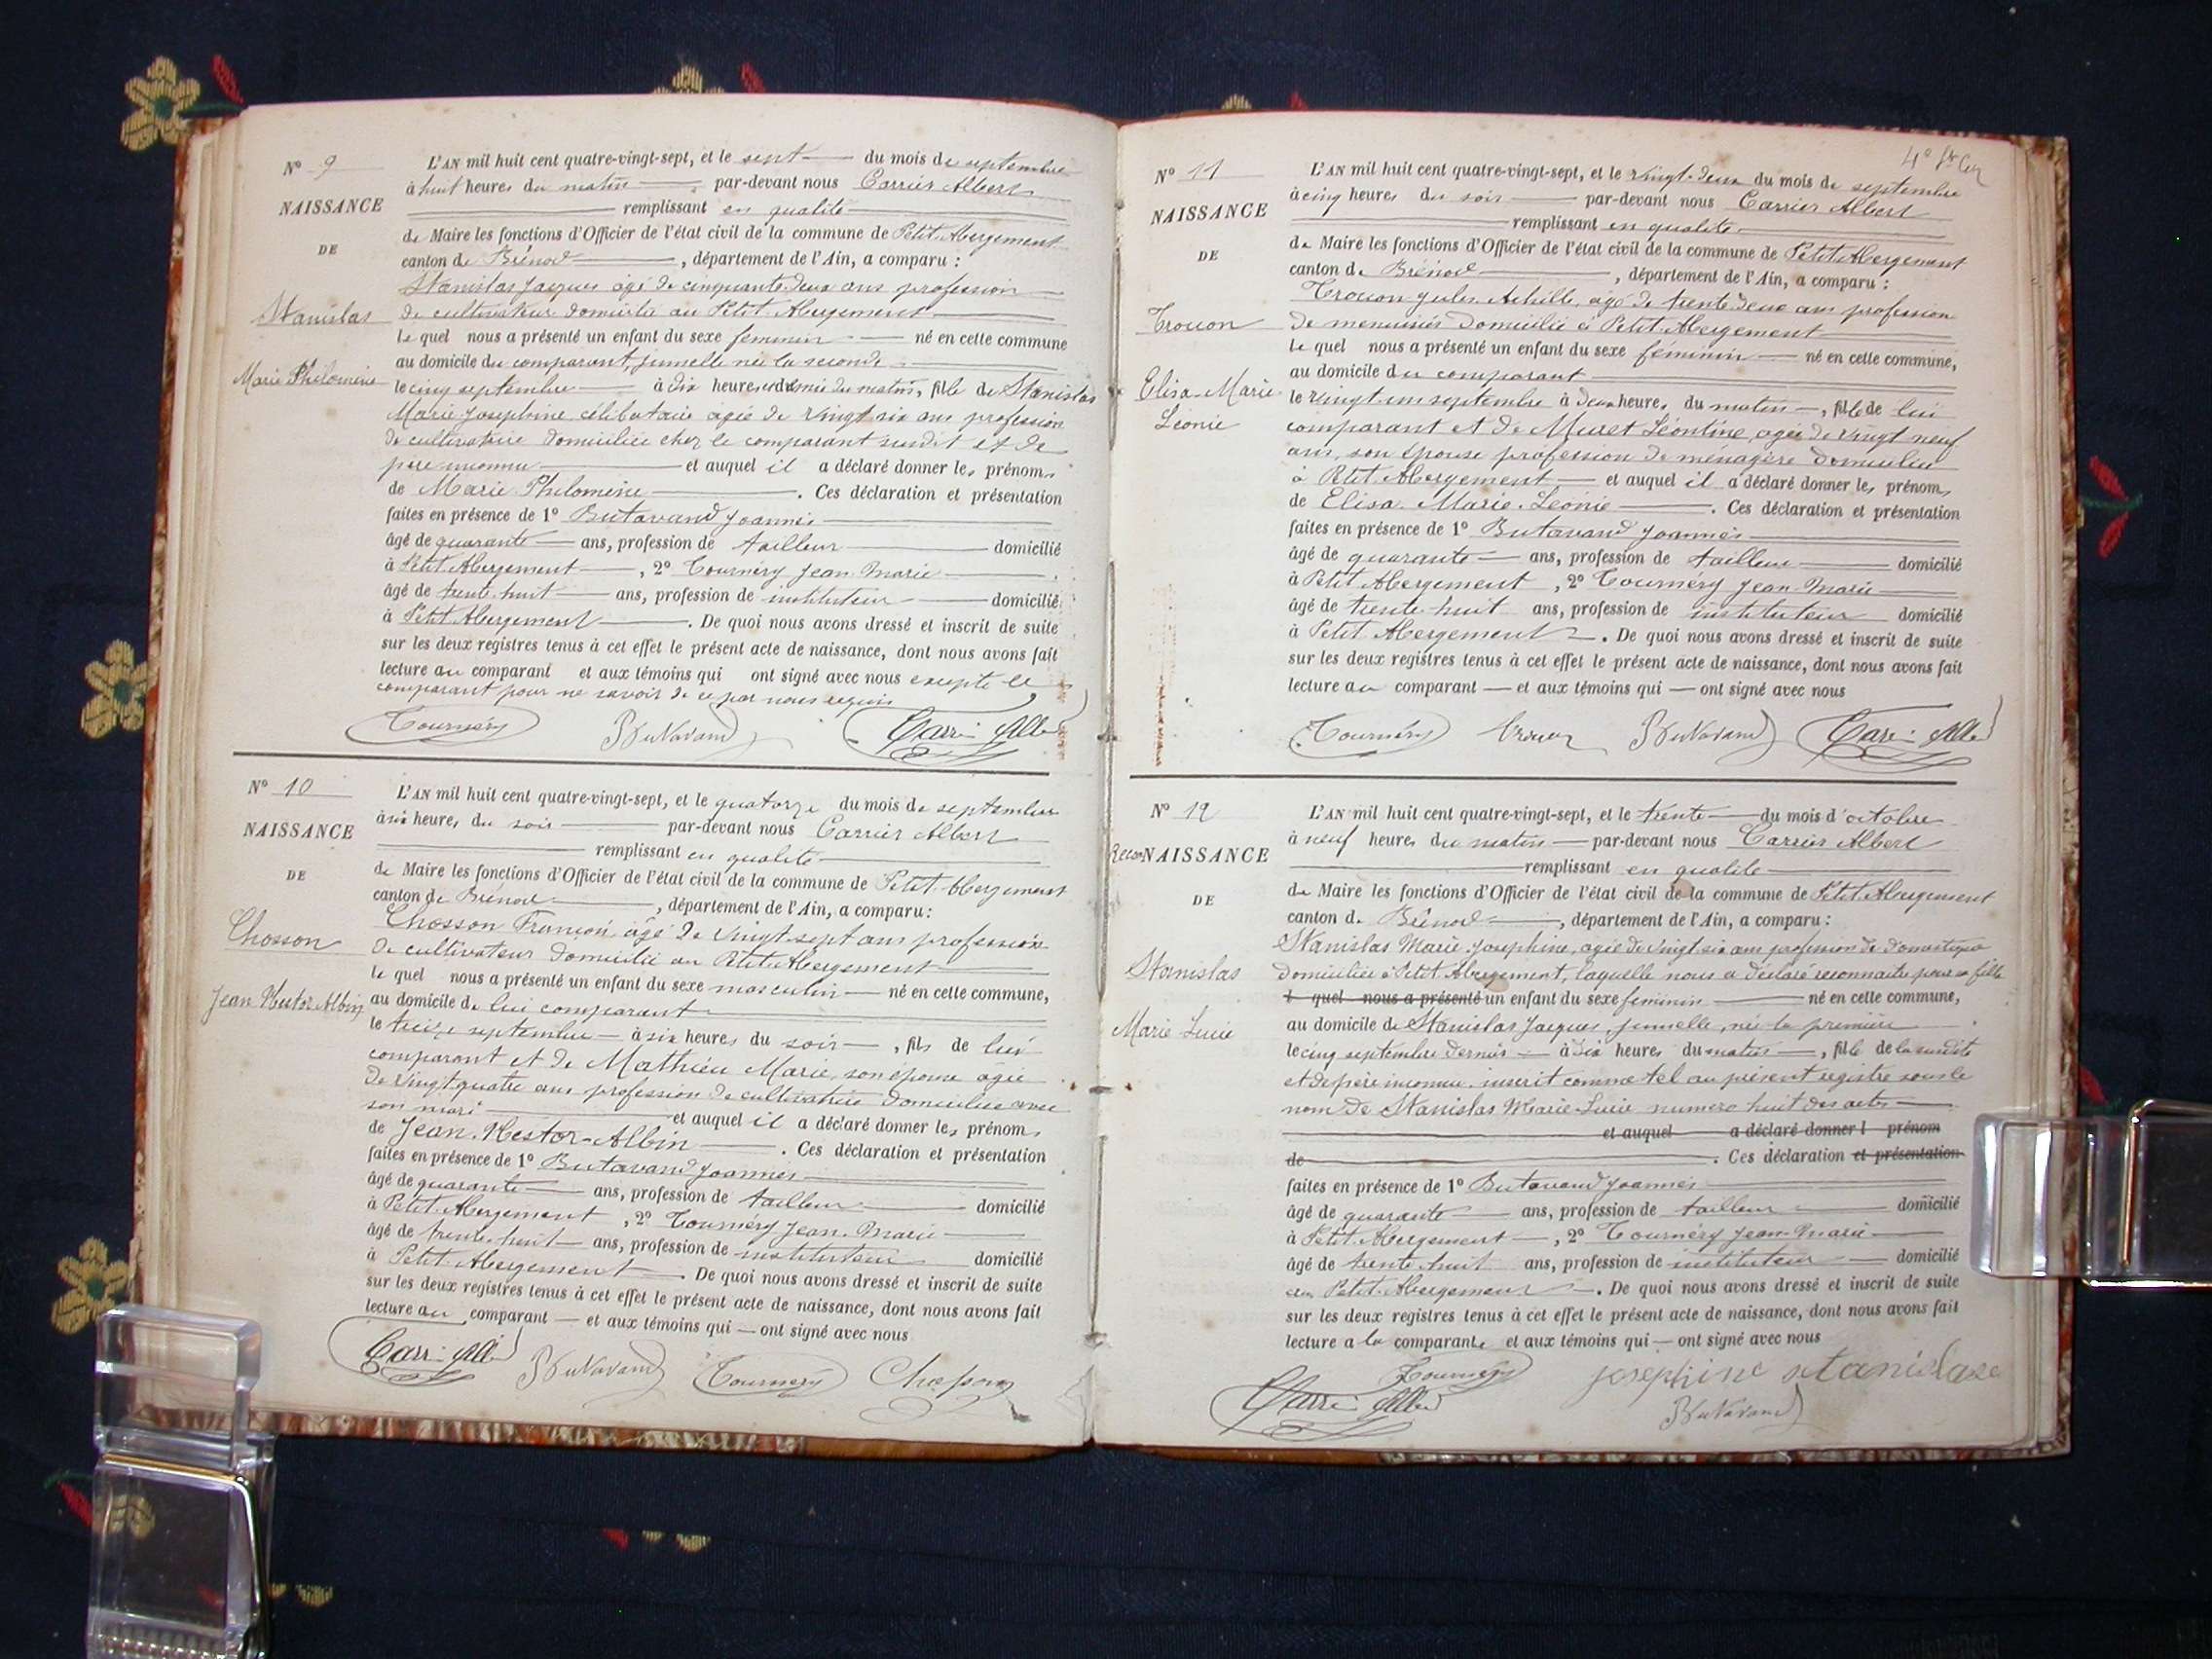 Nº 9
NAISSANCE
DE
Stanislas
Marie Philomène
L'AN mil huit cent quatre-vingt-sept, et le sept du mois de septembre
à huit heures du matin par-devant nous Carrier Albert
remplissant en qualité
de Maire les fonctions d'Officier de l'état civil de la commune de Petit Abergement
canton de Brénod, département de l'Ain, a comparu :
Stanislas Jacques âgé de cinquante deux ans profession
de cultivateur domicilié au Petit Abergement
Le quel nous a présenté un enfant du sexe féminin né en cette commune
au domicile du comparant, jumelle née la seconde
le cinq septembre à dix heures et demie du matin, fille de Stanislas
Marie Josephine célibataire agée de vingt six ans profession
de cultivatrice domiciliée chez le comparant susdit et de
père inconnu et auquel il a déclaré donner les prénoms
de Marie Philomène. Ces déclaration et présentation
faites en présence de 1º Butavand Joannès
âgé de quarante ans, profession de tailleur domicilié
à Petit Abergement, 2º Tournéry Jean Marie
âgé de trente huit ans, profession de instituteur domicilié
à Petit Abergement. De quoi nous avons dressé et inscrit de suite
sur les deux registres tenus à cet effet le présent acte de naissance, dont nous avons fait
lecture au comparant et aux témoins qui ont signé avec nous excepté le
comparant pour ne savoir de ce par nous requis
Tournéry Butavand Carrier Albert
Nº 10
NAISSANCE
DE
Chosson
Jean Hestor Albin
L'AN mil huit cent quatre-vingt-sept, et le quatorze du mois de septembre
à six heures du soir par-devant nous Carrier Albert
remplissant en qualité
de Maire les fonctions d'Officier de l'état civil de la commune de Petit Abergement
canton de Brénod, département de l'Ain, a comparu :
Chosson François âgé de vingt sept ans profession
de cultivateur domicilié au Petit Abergement
Le quel nous a présenté un enfant du sexe masculin né en cette commune,
au domicile de lui comparant
le treize septembre à six heures du soir, fils de lui
comparant et de Mathieu Marie, son épouse agée
de vingt quatre ans profession de cultivatrice domiciliée avec
son mari et auquel il a déclaré donner les prénoms
de Jean-Hestor-Albin. Ces déclaration et présentation
faites en présence de 1º Butavand Joannès
âgé de quarante ans, profession de tailleur domicilié
à Petit Abergement, 2º Tournéry Jean-Marie
âgé de trente huit ans, profession de instituteur domicilié
à Petit Abergement. De quoi nous avons dressé et inscrit de suite
sur les deux registres tenus à cet effet le présent acte de naissance, dont nous avons fait
lecture au comparant et aux témoins qui ont signé avec nous
Carrier Albert Butavand Tournéry Chosson
Nº 11
NAISSANCE
DE
Trouon
Elisa-Marie
Léonie
L'AN mil huit cent quatre-vingt-sept, et le vingt-deux du mois de septembre
à cinq heures du soir par-devant nous Carrier Albert
remplissant en qualité
de Maire les fonctions d'Officier de l'état civil de la commune de Petit Abergement
canton de Brénod, département de l'Ain, a comparu :
Trouon Jules Achille, agé de trente deux ans profession
de menuisier domicilié à Petit Abergement
Le quel nous a présenté un enfant du sexe féminin né en cette commune,
au domicile du comparant
le vingt-un septembre à deux heures du matin, fille de lui
comparant et de Muret Léontine, agée de vingt neuf
ans, son épouse profession de ménagère domiciliée
à Petit Abergement et auquel il a déclaré donner les prénoms
de Elisa-Marie-Léonie. Ces déclaration et présentation
faites en présence de 1º Butavand Joannès
âgé de quarante ans, profession de tailleur domicilié
à Petit Abergement, 2º Tournéry Jean-Marie
âgé de trente-huit ans, profession de instituteur domicilié
à Petit Abergement. De quoi nous avons dressé et inscrit de suite
sur les deux registres tenus à cet effet le présent acte de naissance, dont nous avons fait
lecture au comparant et aux témoins qui ont signé avec nous
Tournéry Trouon Butavand Carrier Albert
Nº 12
ReconNAISSANCE
DE
Stanislas
Marie Lucie
L'AN mil huit cent quatre-vingt-sept, et le trente du mois d'octobre
à neuf heures du matin par-devant nous Carrier Albert
remplissant en qualité
de Maire les fonctions d'Officier de l'état civil de la commune de Petit Abergement
canton de Brénod, département de l'Ain, a comparu :
Stanislas Marie Josephine, agée de vingt six ans profession de domestique
domiciliée à Petit Abergement, laquelle nous a déclaré reconnaitre pour sa fille
l quel nous a présenté un enfant du sexe féminin né en cette commune,
au domicile de Stanislas Jacques, jumelle, née la première
le cinq septembre dernier à dix heures du matin, fille de la susdite
et de père inconnu, inscrit comme tel au présent registre sous le
nom de Stanislas Marie Lucie numéro huit des actes
et auquel a déclaré donner l prénom
de . Ces déclaration et présentation
faites en présence de 1º Butavand Joannès
âgé de quarante ans, profession de tailleur domicilié
à Petit Abergement, 2º Tournéry Jean-Marie
âgé de trente huit ans, profession de instituteur domicilié
au Petit Abergement. De quoi nous avons dressé et inscrit de suite
sur les deux registres tenus à cet effet le présent acte de naissance, dont nous avons fait
lecture a la comparante et aux témoins qui ont signé avec nous
Tournéry josephine stanislase
Carrier Albert Butavand